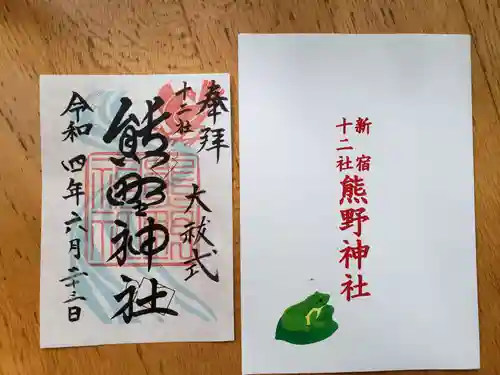 奉拝
十二社
大祓式
熊野神社
令和四年六月二十三日
新宿
十二社
熊野神社